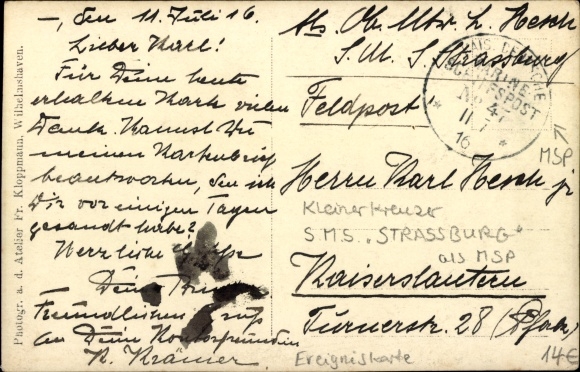 Photogr. a. d. Atelier Fr. Kloppmann, Wilhelmshaven.
–, den 11. Juli 16.
Lieber Karl!
Für Deine heute
erhaltene Karte vielen
Dank. Kannst Du
meinen Kartenbrief
beantworten, den ich
Dir vor einigen Tagen
gesandt habe?
Herzliche Grüße
Dein
Freundlichen Gruß
an Deine Kontorfreundin
R. Krämer
Abs. Ob. Mtr. L. Hesch
S.M.S. Strassburg
Feldpost
KAIS. DEUTSCHE
MARINE-
SCHIFFSPOST
No 47
11 7
16
MSP
Herrn Karl Hesch jr
Kleiner Kreuzer
S.M.S. „STRASSBURG"
als MSP
Kaiserslautern
Turnerstr. 28 (Pfalz)
Ereigniskarte
14€